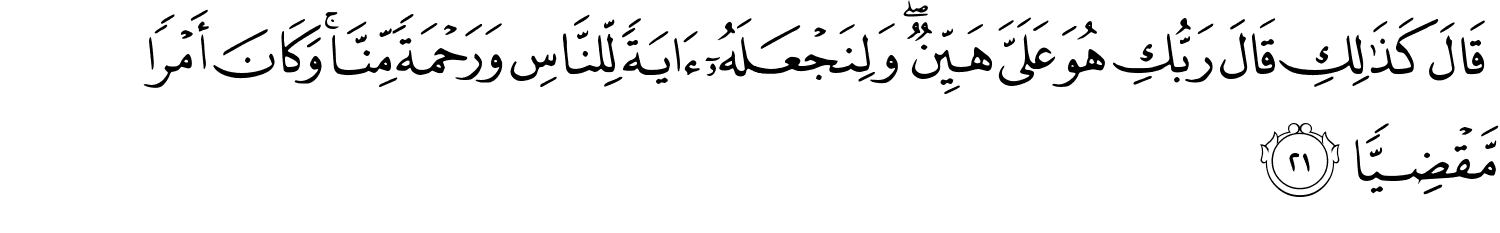 قَالَ كَذَٰلِكِ قَالَ رَبُّكِ هُوَ عَلَيَّ هَيِّنٌۭ ۖ وَلِنَجْعَلَهُۥٓ ءَايَةًۭ لِّلنَّاسِ وَرَحْمَةًۭ مِّنَّا ۚ وَكَانَ أَمْرًۭا
مَّقْضِيًّۭا ٢١